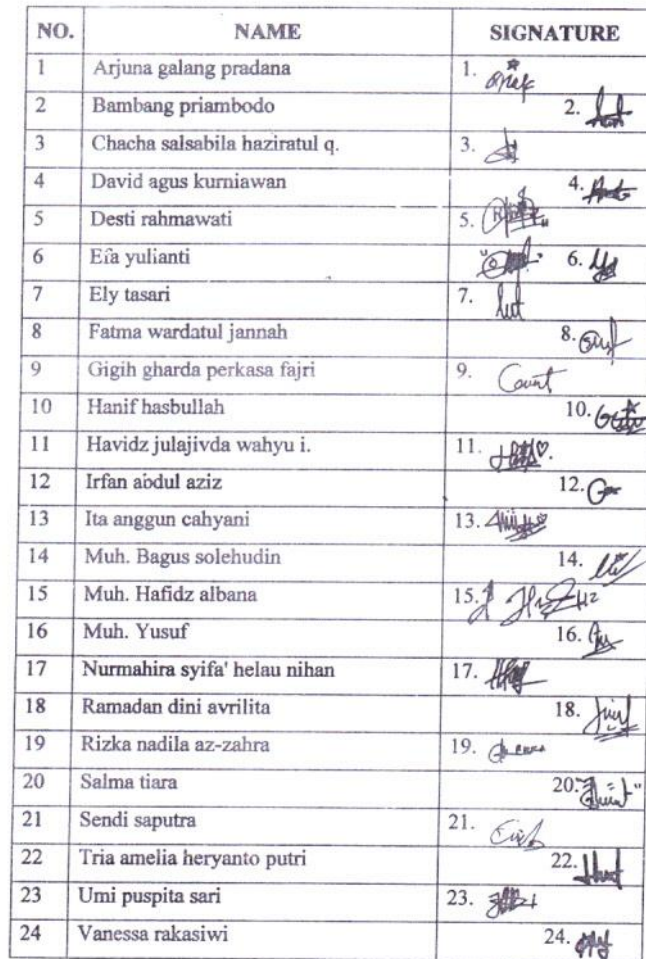 NO. NAME SIGNATURE
1 Arjuna galang pradana 1.
2 Bambang priambodo 2.
3 Chacha salsabila haziratul q. 3.
4 David agus kurniawan 4.
5 Desti rahmawati 5.
6 Efa yulianti 6.
7 Ely tasari 7.
8 Fatma wardatul jannah 8.
9 Gigih gharda perkasa fajri 9.
10 Hanif hasbullah 10.
11 Havidz julajivda wahyu i. 11.
12 Irfan abdul aziz 12.
13 Ita anggun cahyani 13.
14 Muh. Bagus solehudin 14.
15 Muh. Hafidz albana 15.
16 Muh. Yusuf 16.
17 Nurmahira syifa' helau nihan 17.
18 Ramadan dini avrilita 18.
19 Rizka nadila az-zahra 19.
20 Salma tiara 20.
21 Sendi saputra 21.
22 Tria amelia heryanto putri 22.
23 Umi puspita sari 23.
24 Vanessa rakasiwi 24.